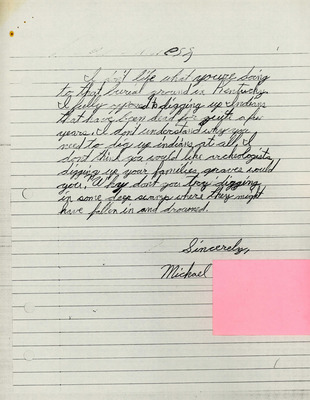 I don't like what you're doing
to that burial ground in Kentucky
I fully opposed to digging up Indians
that have been dead for quite a few
years. I dont understand why you
need to dig up indians at all, I
dont think you would like archeologists
digging up your families graves would
you, Why dont you try digging
in some deep where they might
have fallen in and drowned.
Sincerely,
Michael